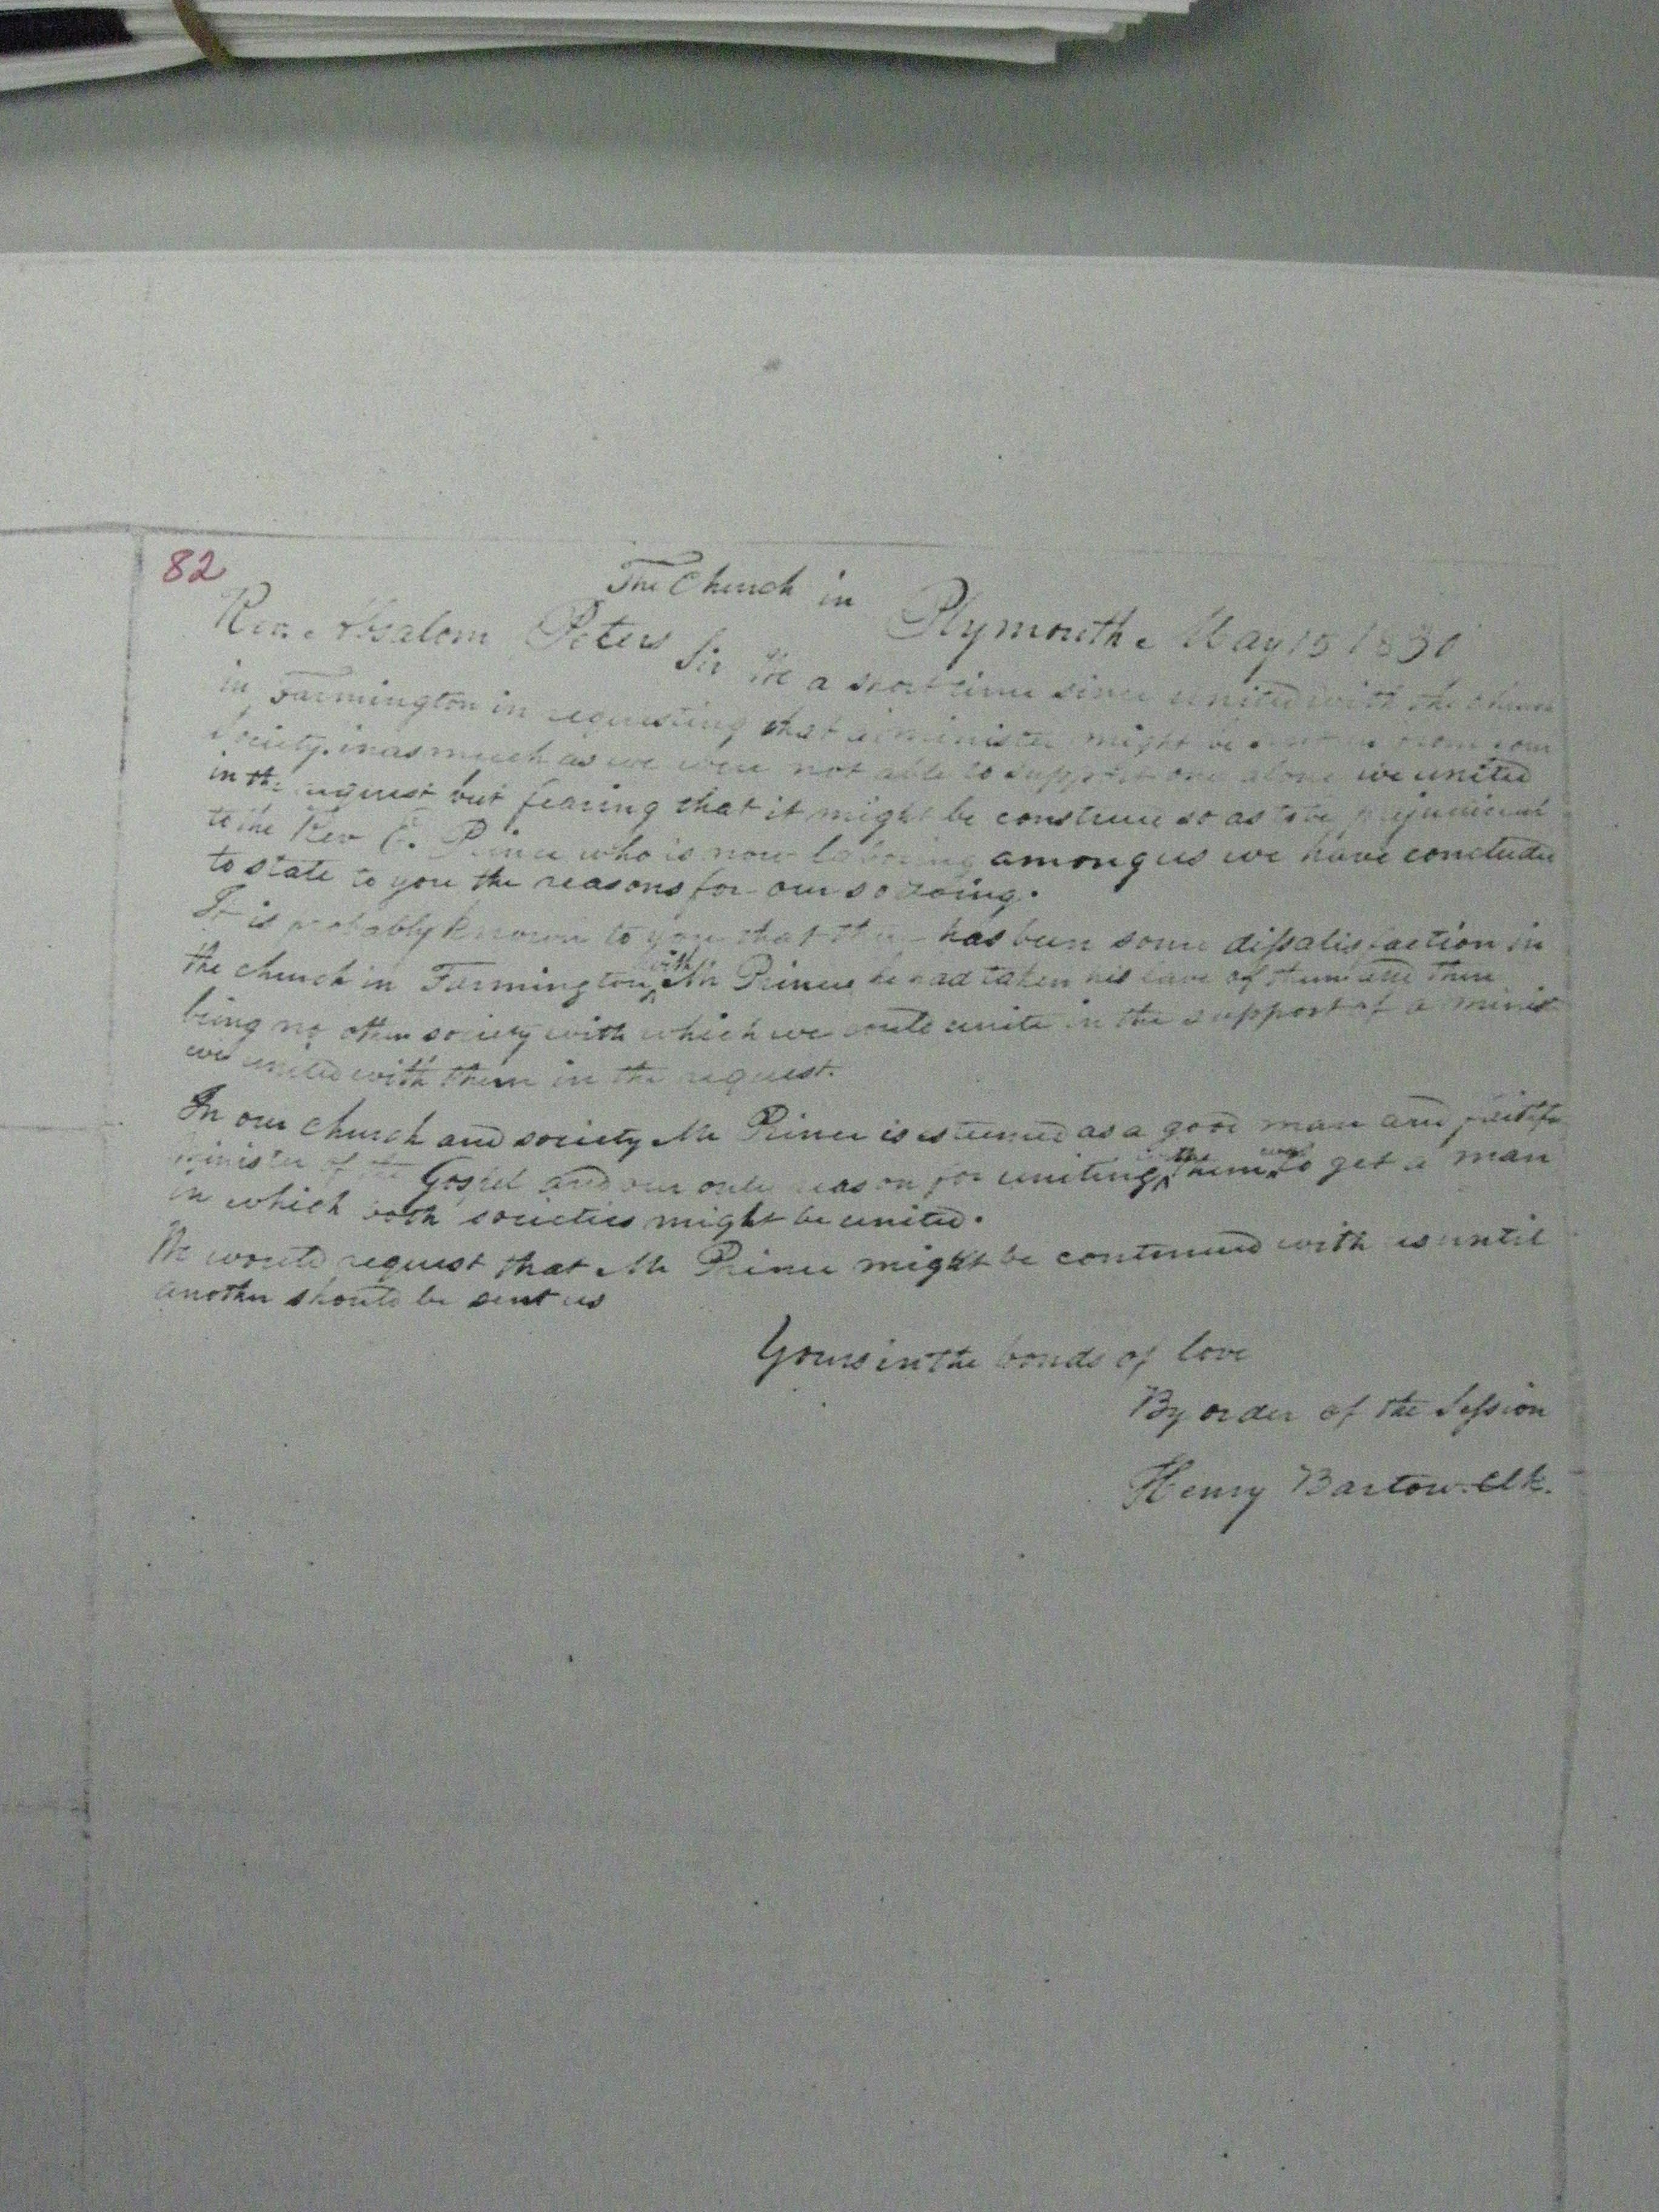 82
The Church in Plymouth. May 15 1830
Rev. Absalom Peters Sir We a short time since united with the church
in Farmington in requesting that a minister might be from your
Society. inasmuch as we were not able to support one alone we united
in the request but fearing that it might be construed so as to be prejudicial
to the Rev E. Prince who is now laboring among us we have concluded
to state to you the reasons for our so doing.
It is probably known to you that there has been some dissatisfaction in
the church in Farmington with Mr Prince he had taken his leave of them and there
being no other society with which we could unite in the support of a minist
we united with them in the request.
In our church and society Mr Prince is esteemed as a good man and faithf
minister of the Gospel and our only reason for uniting with them was to get a man
in which both societies might be united.
We would request that Mr Prince might be continued with us until
another should be sent us
Yours in the bonds of love
By order of the Session
Henry Bartow. Clk.